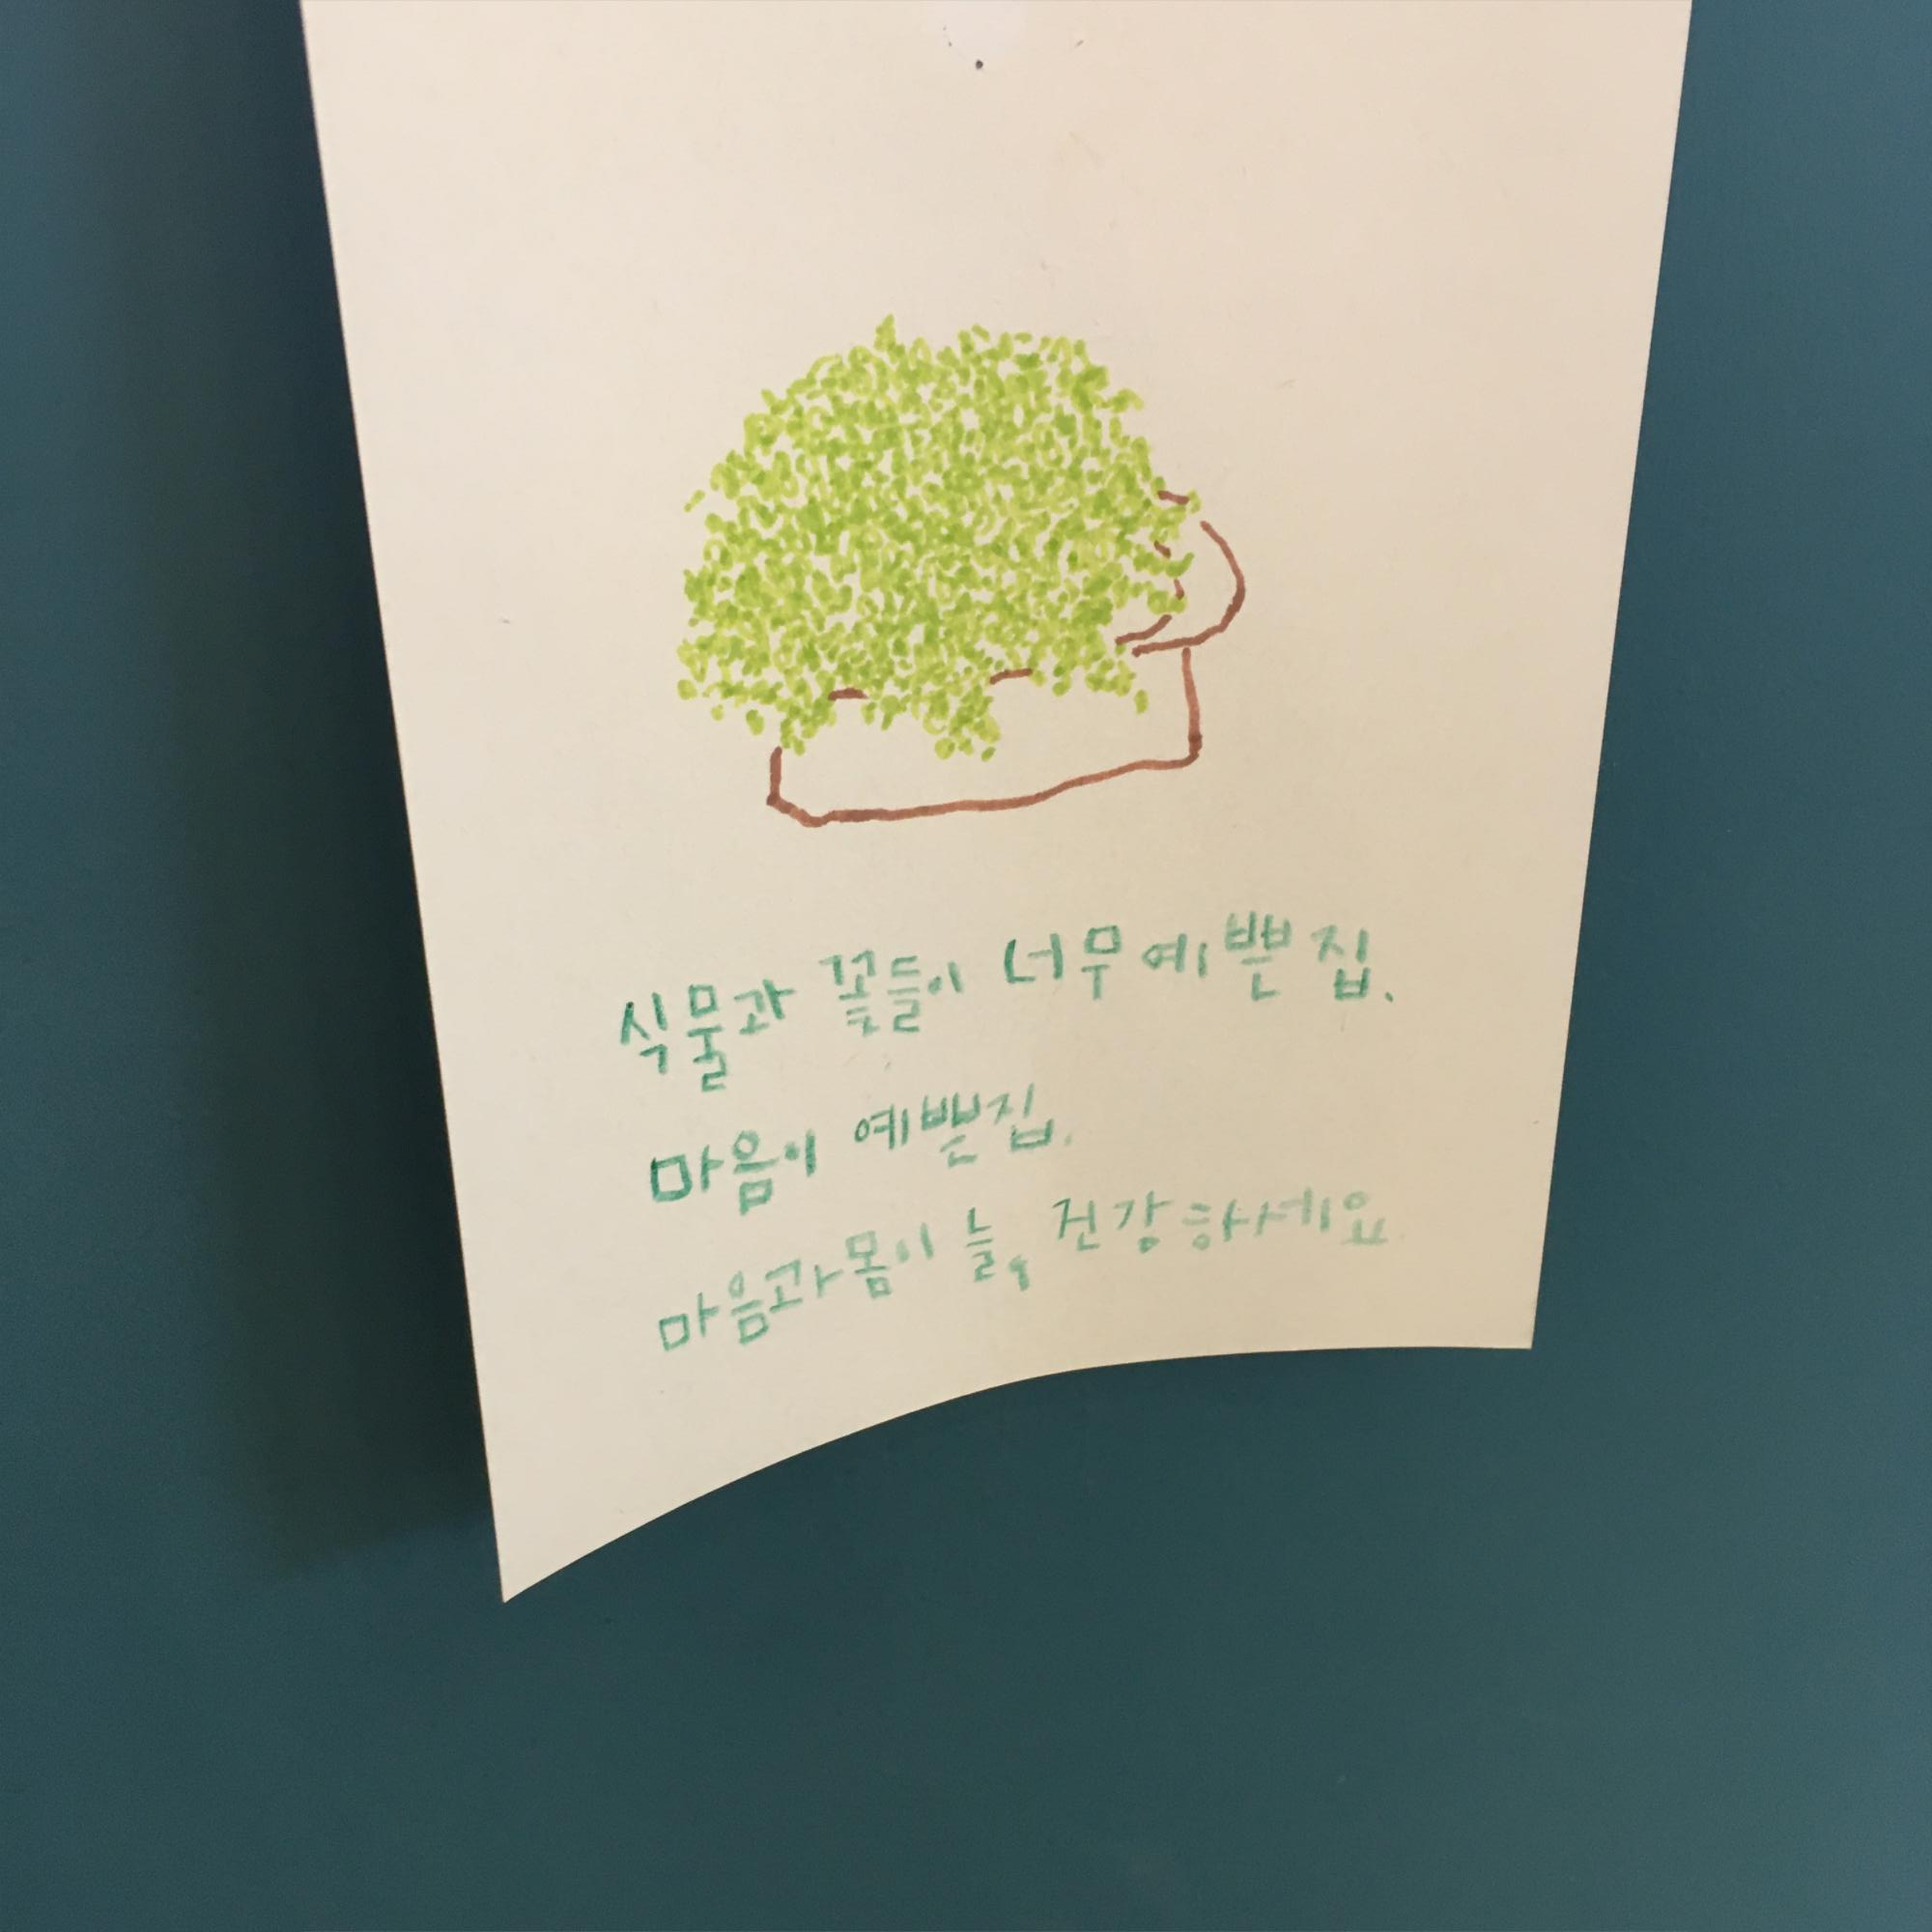 식물과 꽃들이 너무 예쁜 집.
마음이 예쁜집.
마음과 몸이 늘, 건강하세요